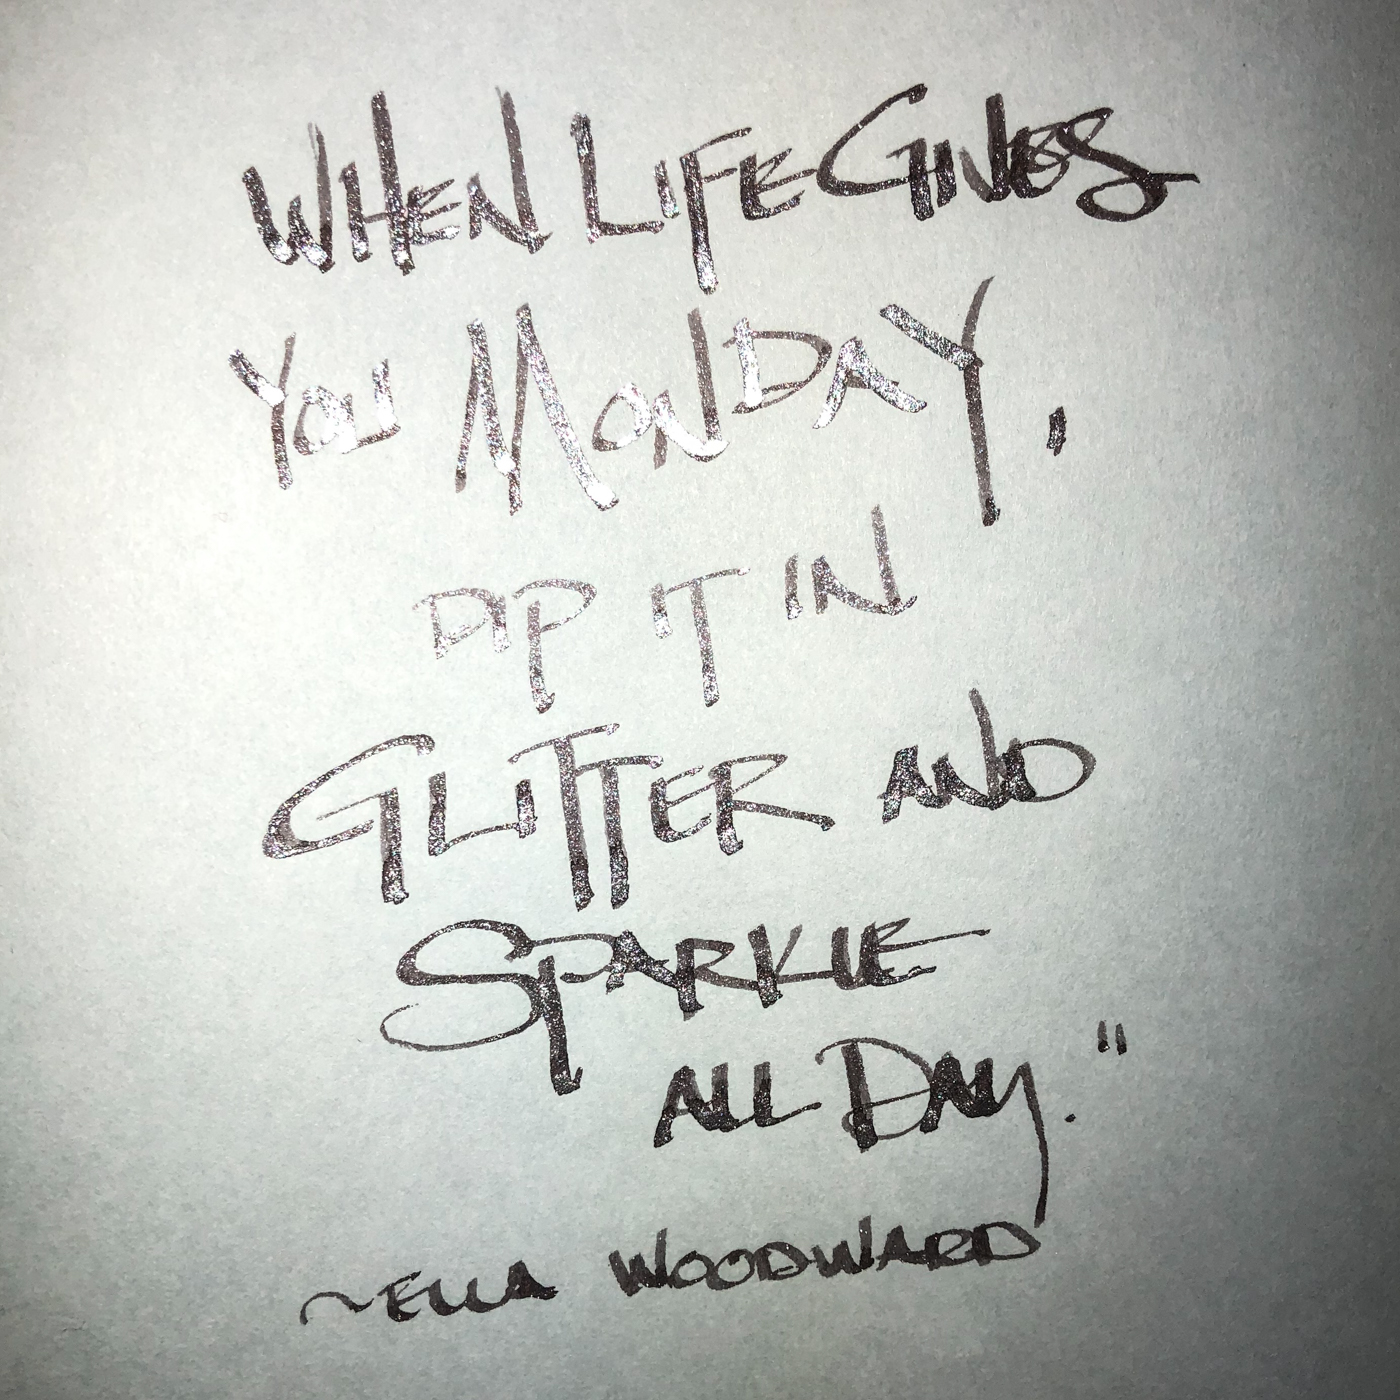 WHEN LIFE GIVES
YOU MONDAY,
DIP IT IN
GLITTER AND
SPARKLE
ALL DAY."
~ELLA WOODWARD